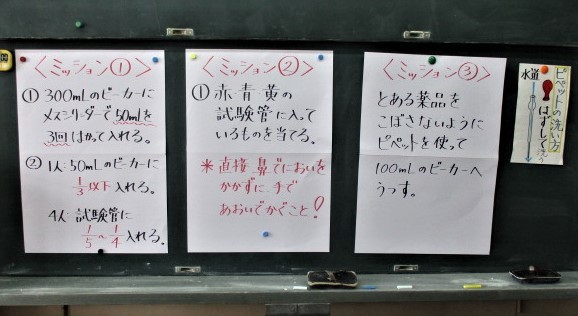 <ミッション①>
① 300mLのビーカーに
メスシリンダーで50mLを
3回はかって入れる。
② 1人:50mLのビーカーに
1/3以下入れる。
4人:試験管に
1/5〜1/4入れる。
<ミッション②>
① 赤・青・黄の
試験管に入って
いるものを当てる。
※直接鼻でにおいを
かがずに手で
あおいでかぐこと!
<ミッション③>
とある薬品を
こぼさないように
ピペットを使って
100mLのビーカーへ
うつす。
ピペットの洗い方
はずして
水道